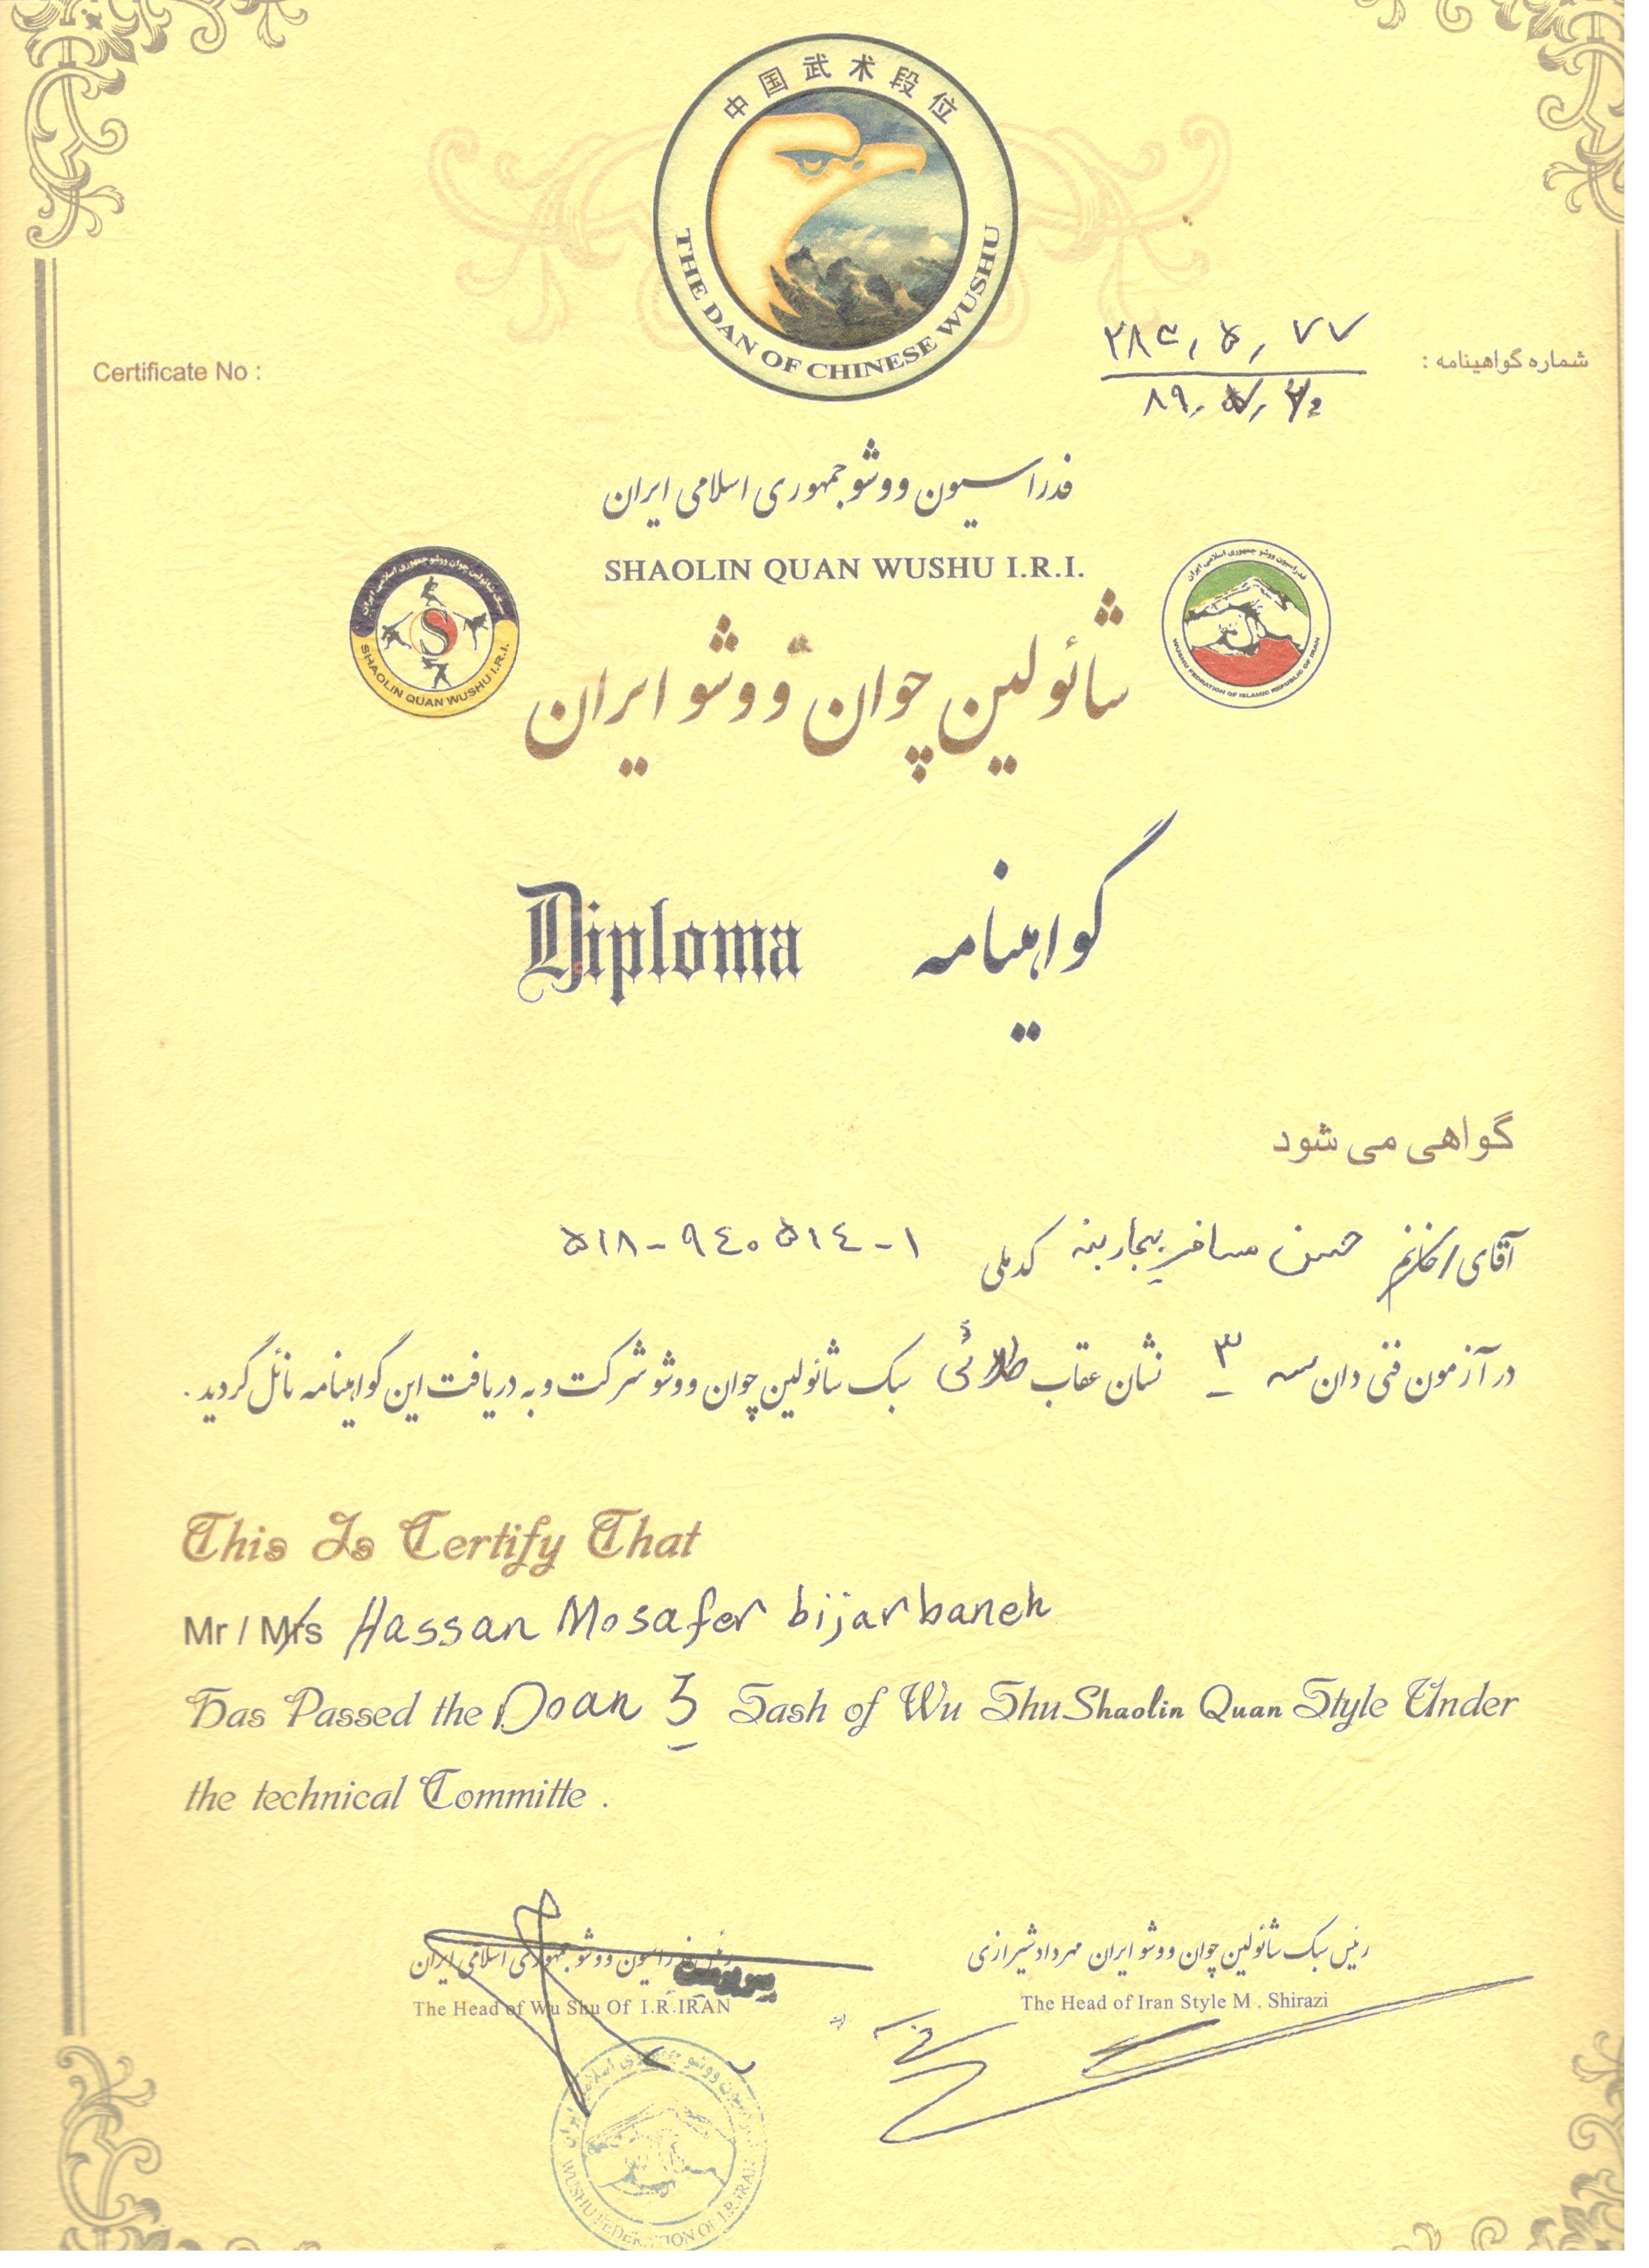 中国武术段位
THE DAN OF CHINESE WUSHU
Certificate No :
شماره گواهینامه :
فدراسیون ووشو جمهوری اسلامی ایران
SHAOLIN QUAN WUSHU I.R.I.
سبک شائولین چوان ووشو جمهوری اسلامی ایران
SHAOLIN QUAN WUSHU I.R.I.
فدراسیون ووشو جمهوری اسلامی ایران
WUSHU FEDRATION OF ISLAMIC REPUBLIC OF IRAN
شائولین چوان ووشو ایران
Diploma گواهینامه
گواهی می شود
آقای / خانم حسن مسافر بیجاربنه کد ملی ۵۱۸-۹٤۰۵۱٤-۱
در آزمون فنی دان سه ۳ نشان عقاب طلائی سبک شائولین چوان ووشو شرکت و به دریافت این گواهینامه نائل گردید .
This Is Certify That
Mr / Mrs Hassan Mosafer bijarbaneh
Has Passed the Doan 3 Sash of Wu Shu Shaolin Quan Style Under
the technical Committe .
رئیس سبک شائولین چوان ووشو ایران مهرداد شیرازی
The Head of Iran Style M . Shirazi
رئیس فدراسیون ووشو جمهوری اسلامی ایران
The Head of Wu Shu Of I.R.IRAN
WUSHU FEDERATION OF I.R.IRAN